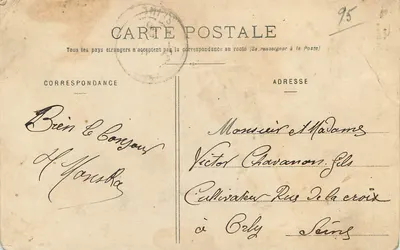 95
CARTE POSTALE
Tous les pays étrangers n'acceptent pas la correspondance au recto (Se renseigner à la Poste)
CORRESPONDANCE
ADRESSE
Bien le Bonjour
Monsieur et Madame
Victor Chavanon fils
Cultivateur Rue de la croix
à Orly
Seine